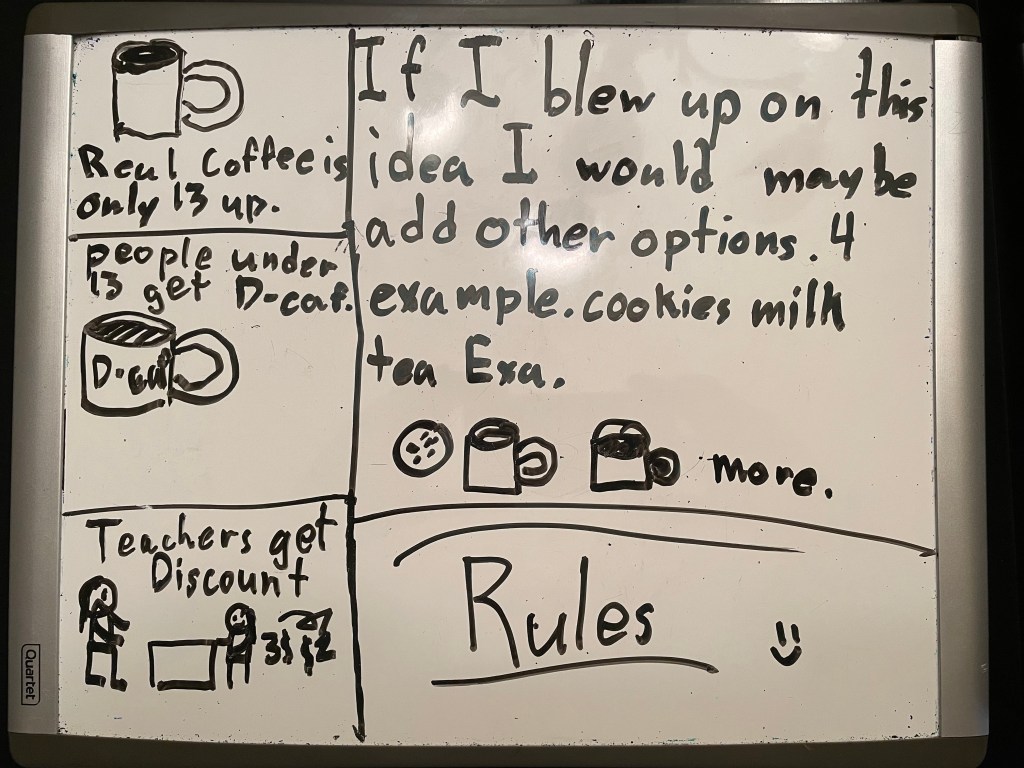 Real Coffee is
only 13 up.
people under
13 get D-caf.
D-caf
Teachers get
Discount
3$ $2
If I blew up on this
idea I would maybe
add other options. 4
example. cookies milk
tea Exa.
more.
Rules
Quartet